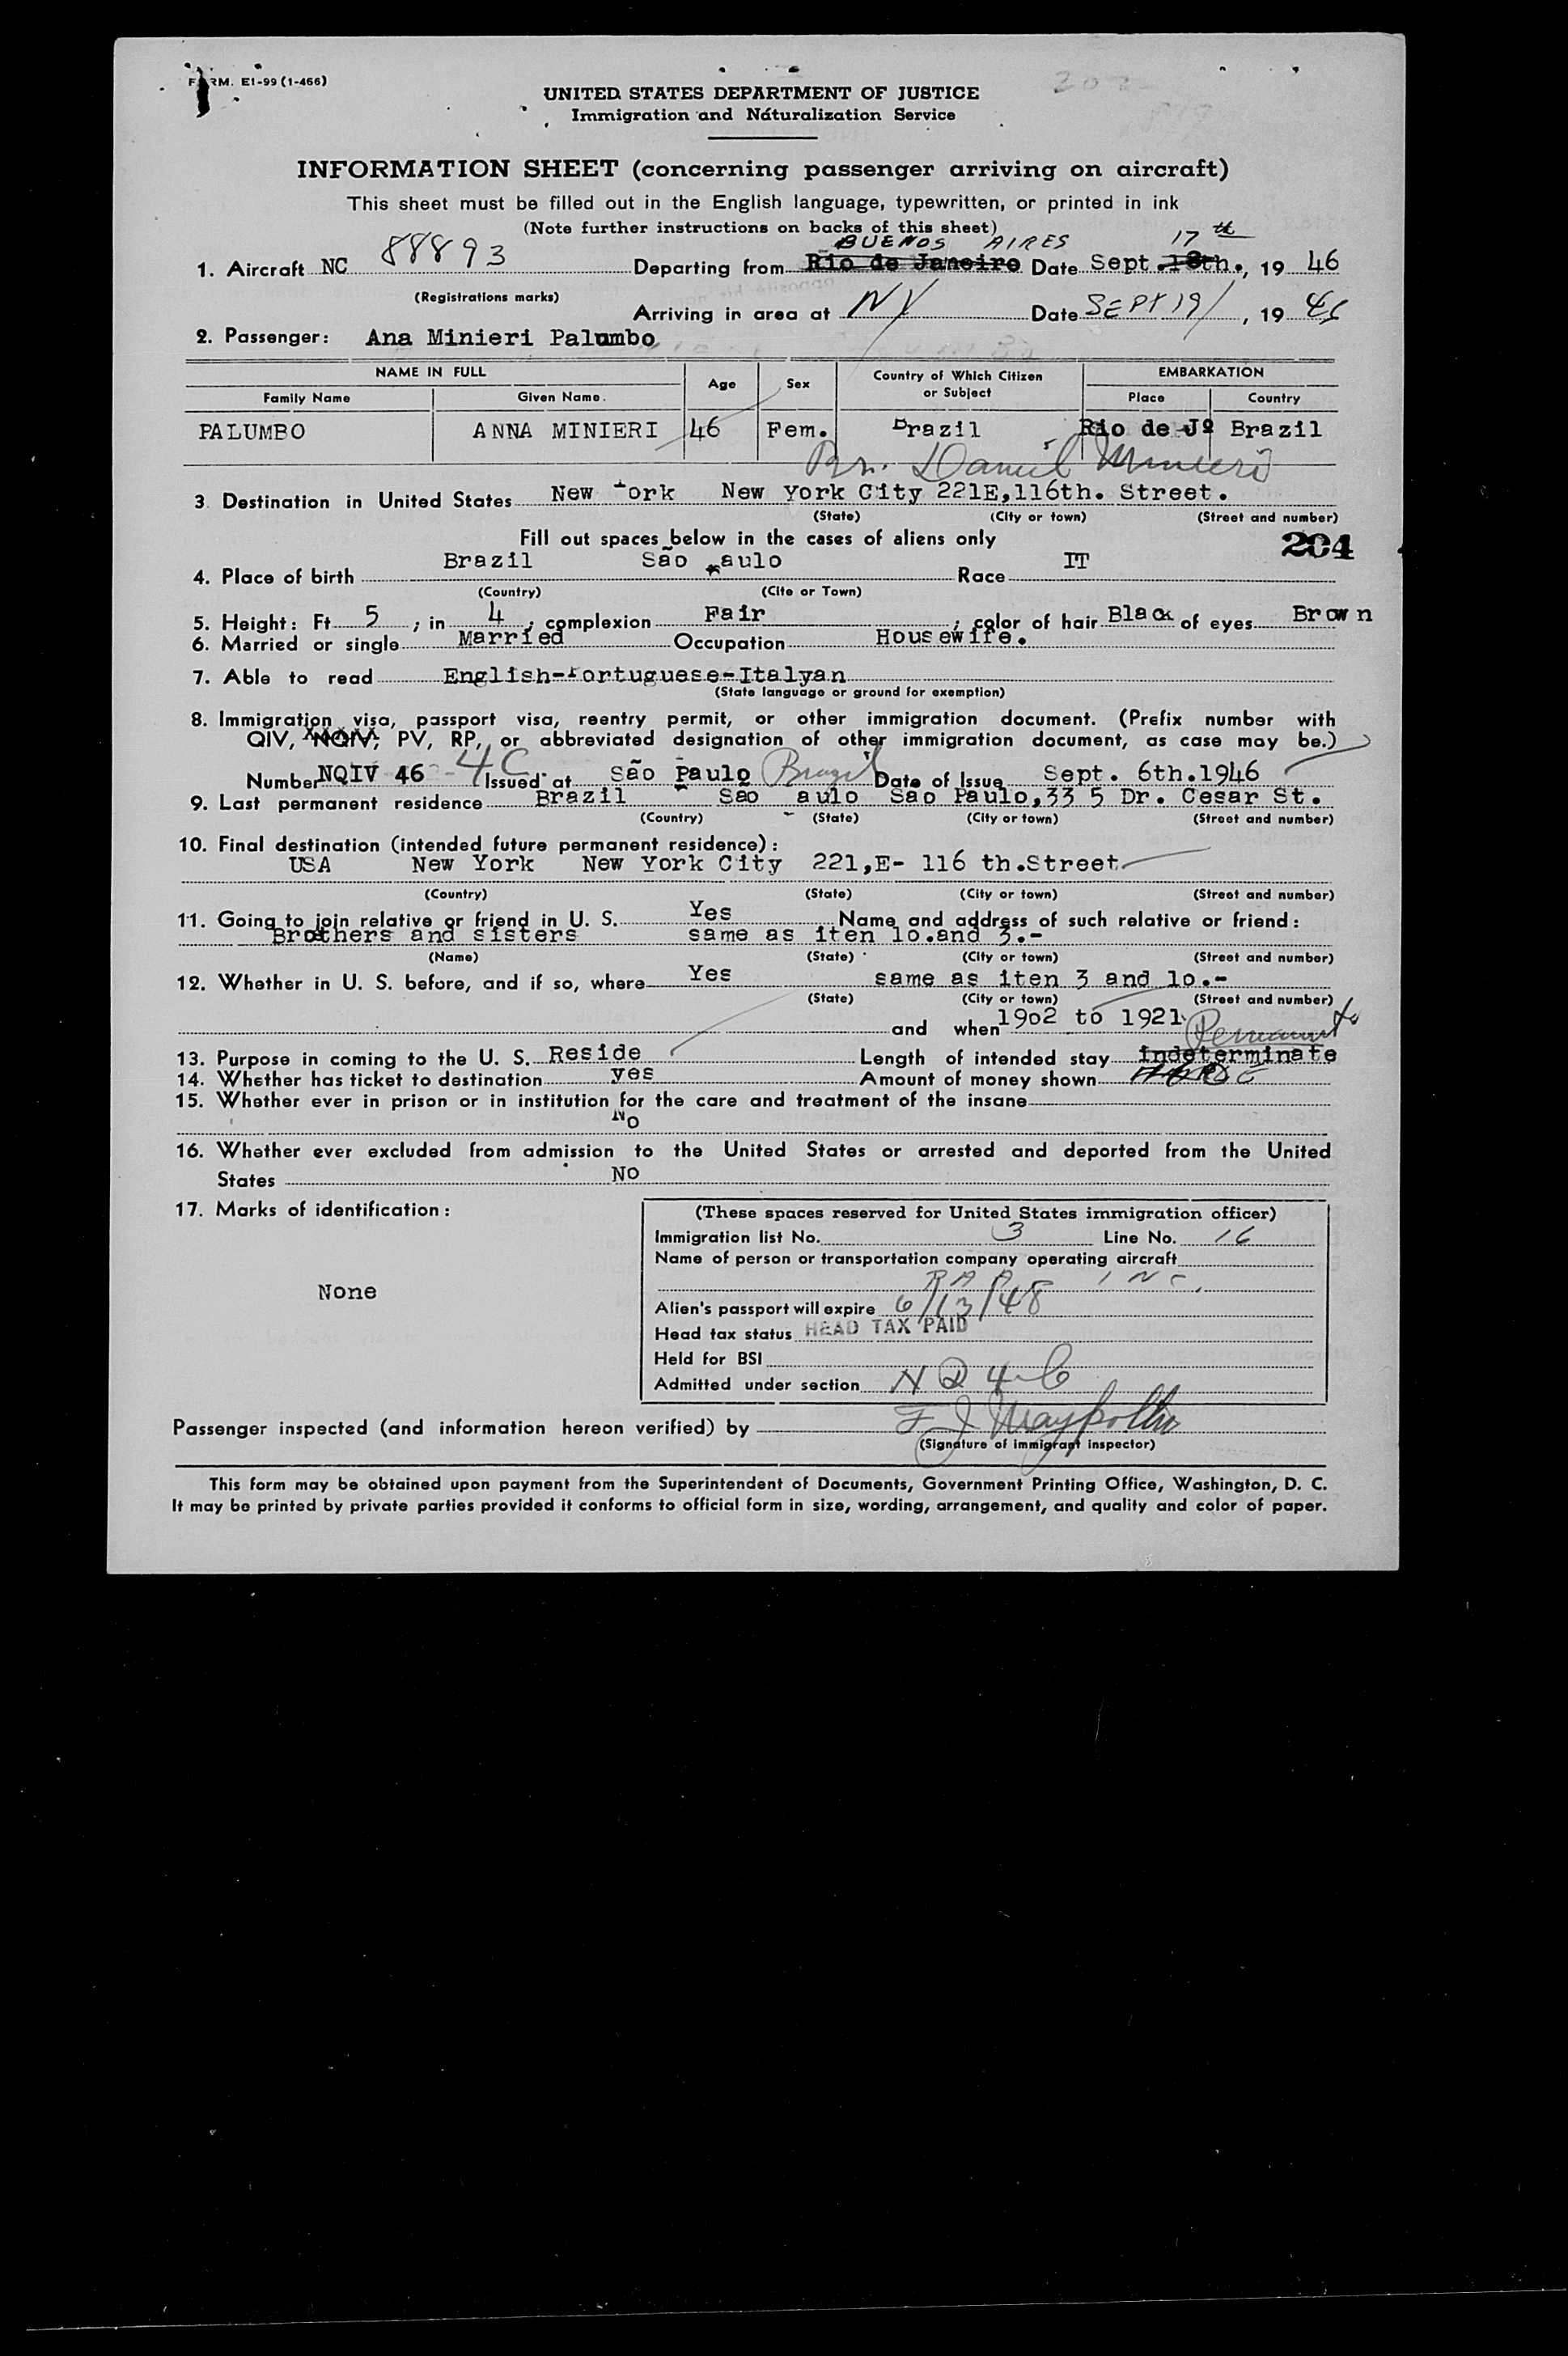 FORM. E1-99 (1-466)
UNITED STATES DEPARTMENT OF JUSTICE
Immigration and Naturalization Service
INFORMATION SHEET (concerning passenger arriving on aircraft)
This sheet must be filled out in the English language, typewritten, or printed in ink
(Note further instructions on backs of this sheet)
BUENOS AIRES 17 th
1. Aircraft NC 88893 Departing from Rio de Janeiro Date Sept. 18th., 19 46
(Registrations marks)
Arriving in area at NY Date SEPT 19, 19 46
2. Passenger: Ana Minieri Palumbo
NAME IN FULL Age Sex Country of Which Citizen or Subject EMBARKATION
Family Name Given Name. Place Country
PALUMBO ANNA MINIERI 46 Fem. Brazil Rio de Jº Brazil
Br. Daniel Minieri
3 Destination in United States New York New York City 221E,116th. Street.
(State) (City or town) (Street and number)
Fill out spaces below in the cases of aliens only
204
4. Place of birth Brazil São Paulo Race IT
(Country) (Cite or Town)
5. Height: Ft 5 ; in 4 ; complexion Fair ; color of hair Black of eyes Brown
6. Married or single Married Occupation Housewife.
7. Able to read English-Portuguese-Italyan
(State language or ground for exemption)
8. Immigration visa, passport visa, reentry permit, or other immigration document. (Prefix number with
QIV, NQIV, PV, RP, or abbreviated designation of other immigration document, as case may be.)
Number NQIV 46 -4C Issued at São Paulo Brazil Date of Issue Sept. 6th.1946
9. Last permanent residence Brazil São aulo São Paulo,33 5 Dr. Cesar St.
(Country) (State) (City or town) (Street and number)
10. Final destination (intended future permanent residence):
USA New York New York City 221,E- 116 th.Street
(Country) (State) (City or town) (Street and number)
11. Going to join relative or friend in U. S. Yes Name and address of such relative or friend:
Brothers and sisters same as iten 1o.and 3.-
(Name) (State) (City or town) (Street and number)
12. Whether in U. S. before, and if so, where Yes same as iten 3 and 1o.-
(State) (City or town) (Street and number)
and when 19o2 to 1921
Permanent
13. Purpose in coming to the U. S. Reside Length of intended stay indeterminate
14. Whether has ticket to destination yes Amount of money shown
15. Whether ever in prison or in institution for the care and treatment of the insane
No
16. Whether ever excluded from admission to the United States or arrested and deported from the United
States No
17. Marks of identification:
None
(These spaces reserved for United States immigration officer)
Immigration list No. 3 Line No. 16
Name of person or transportation company operating aircraft
INC.
Alien's passport will expire 6/13/48
Head tax status HEAD TAX PAID
Held for BSI
Admitted under section NQ 4-C
Passenger inspected (and information hereon verified) by F J
(Signature of immigrant inspector)
This form may be obtained upon payment from the Superintendent of Documents, Government Printing Office, Washington, D. C.
It may be printed by private parties provided it conforms to official form in size, wording, arrangement, and quality and color of paper.